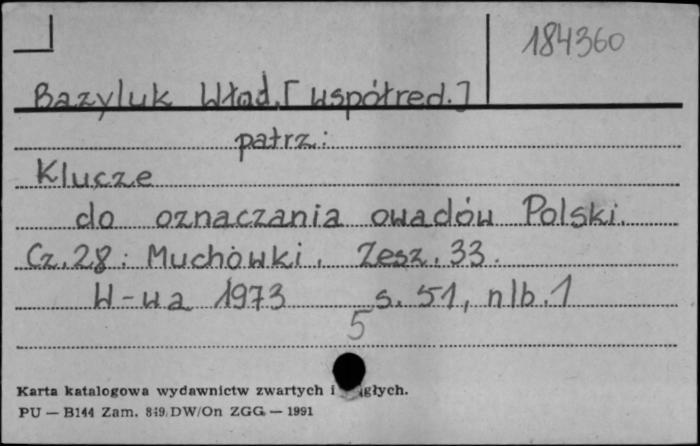 184360
Bazyluk Wład. [współred.]
patrz:
Klucze
do oznaczania owadów Polski.
Cz. 28: Muchówki. Zesz. 33.
W-wa 1973 s. 51, nlb. 1
5
Karta katalogowa wydawnictw zwartych i
PU — B144 Zam. 849/DW/On ZGG — 1991